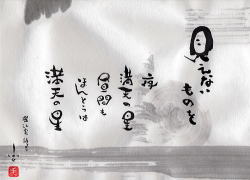 見えない
ものを
夜
満天の星
昼間も
ほんとうは
満天の星